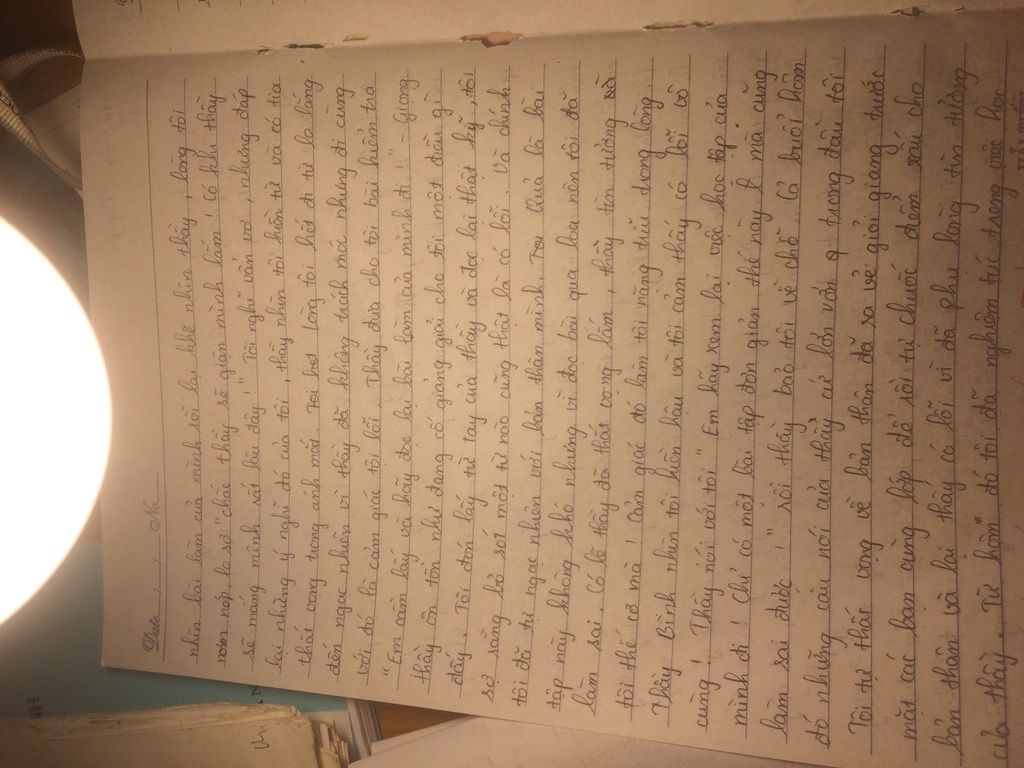 Date / / No.
nhìn bài làm của mình rồi lại khẽ nhìn thầy, lòng tôi
nơm nớp lo sợ "chắc thầy sẽ giận mình lắm! Có khi thầy
sẽ mắng mình rất lâu đây!" Tôi nghĩ vẩn vơ, nhưng đáp
lại những ý nghĩ đó của tôi, thầy nhìn tôi hiền từ và có tia
thất vọng trong ánh mắt. Tôi hơi lòng tôi hết đi từ lo lắng
đến ngạc nhiên vì thầy đã không trách móc nhưng đi cùng
với đó là cảm giác tội lỗi. Thầy đưa cho tôi bài kiểm tra
"Em cầm lấy và hãy đọc lại bài làm của mình đi!". Giọng
thầy ôn tồn như đang cố giảng giải cho tôi một điều gì
đấy. Tôi đón lấy từ tay của thầy và đọc lại thật kỹ, tôi
sợ rằng bỏ sót một từ nào cũng thật là có lỗi. Và chính
tôi đã tự ngạc nhiên với bản thân mình. Quả là bài
tập này không khó nhưng vì đọc bài qua loa nên tôi đã
làm sai. Có lẽ thầy đã thất vọng lắm, thầy tin tưởng
tôi thế cơ mà! Cảm giác đó làm tôi nặng trĩu trong lòng.
Thầy Bình nhìn tôi hiền hậu và tôi cảm thấy có lỗi vô
cùng! Thầy nói với tôi "Em hãy xem lại việc học tập của
mình đi! Chỉ có một bài tập đơn giản thế này mà cũng
làm sai được!" rồi thầy bảo tôi về chỗ. Cả buổi hôm
đó những câu nói của thầy cứ lởn vởn ở trong đầu tôi
Tôi tự thất vọng về bản thân đã ra vẻ giỏi giang trước
mặt các bạn cùng lớp để rồi tự chuốc điểm xấu cho
bản thân và lại thấy có lỗi vì đã phụ lòng tin tưởng
của thầy. Từ hôm đó tôi đã nghiêm túc trong việc học